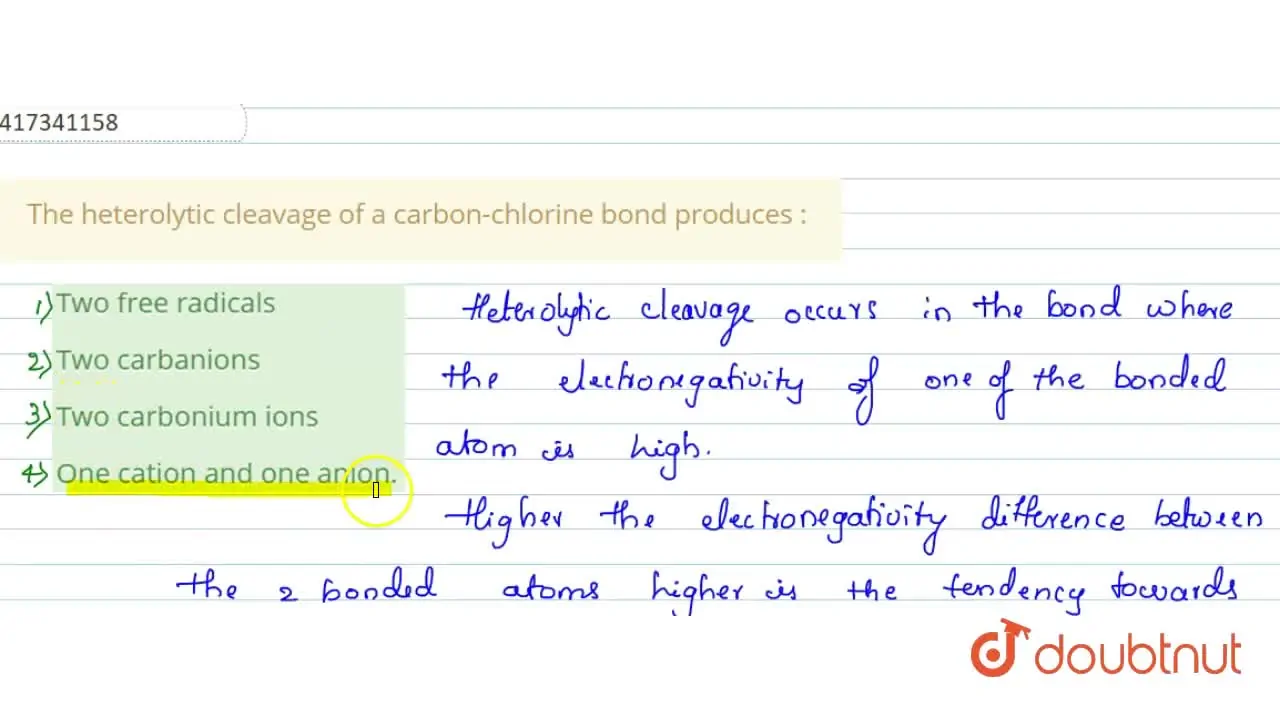 417341158
The heterolytic cleavage of a carbon-chlorine bond produces :
1) Two free radicals
2) Two carbanions
3) Two carbonium ions
4) One cation and one anion.
Heterolytic cleavage occurs in the bond where
the electronegativity of one of the bonded
atom is high.
Higher the electronegativity difference between
the 2 bonded atoms higher is the tendency towards
doubtnut